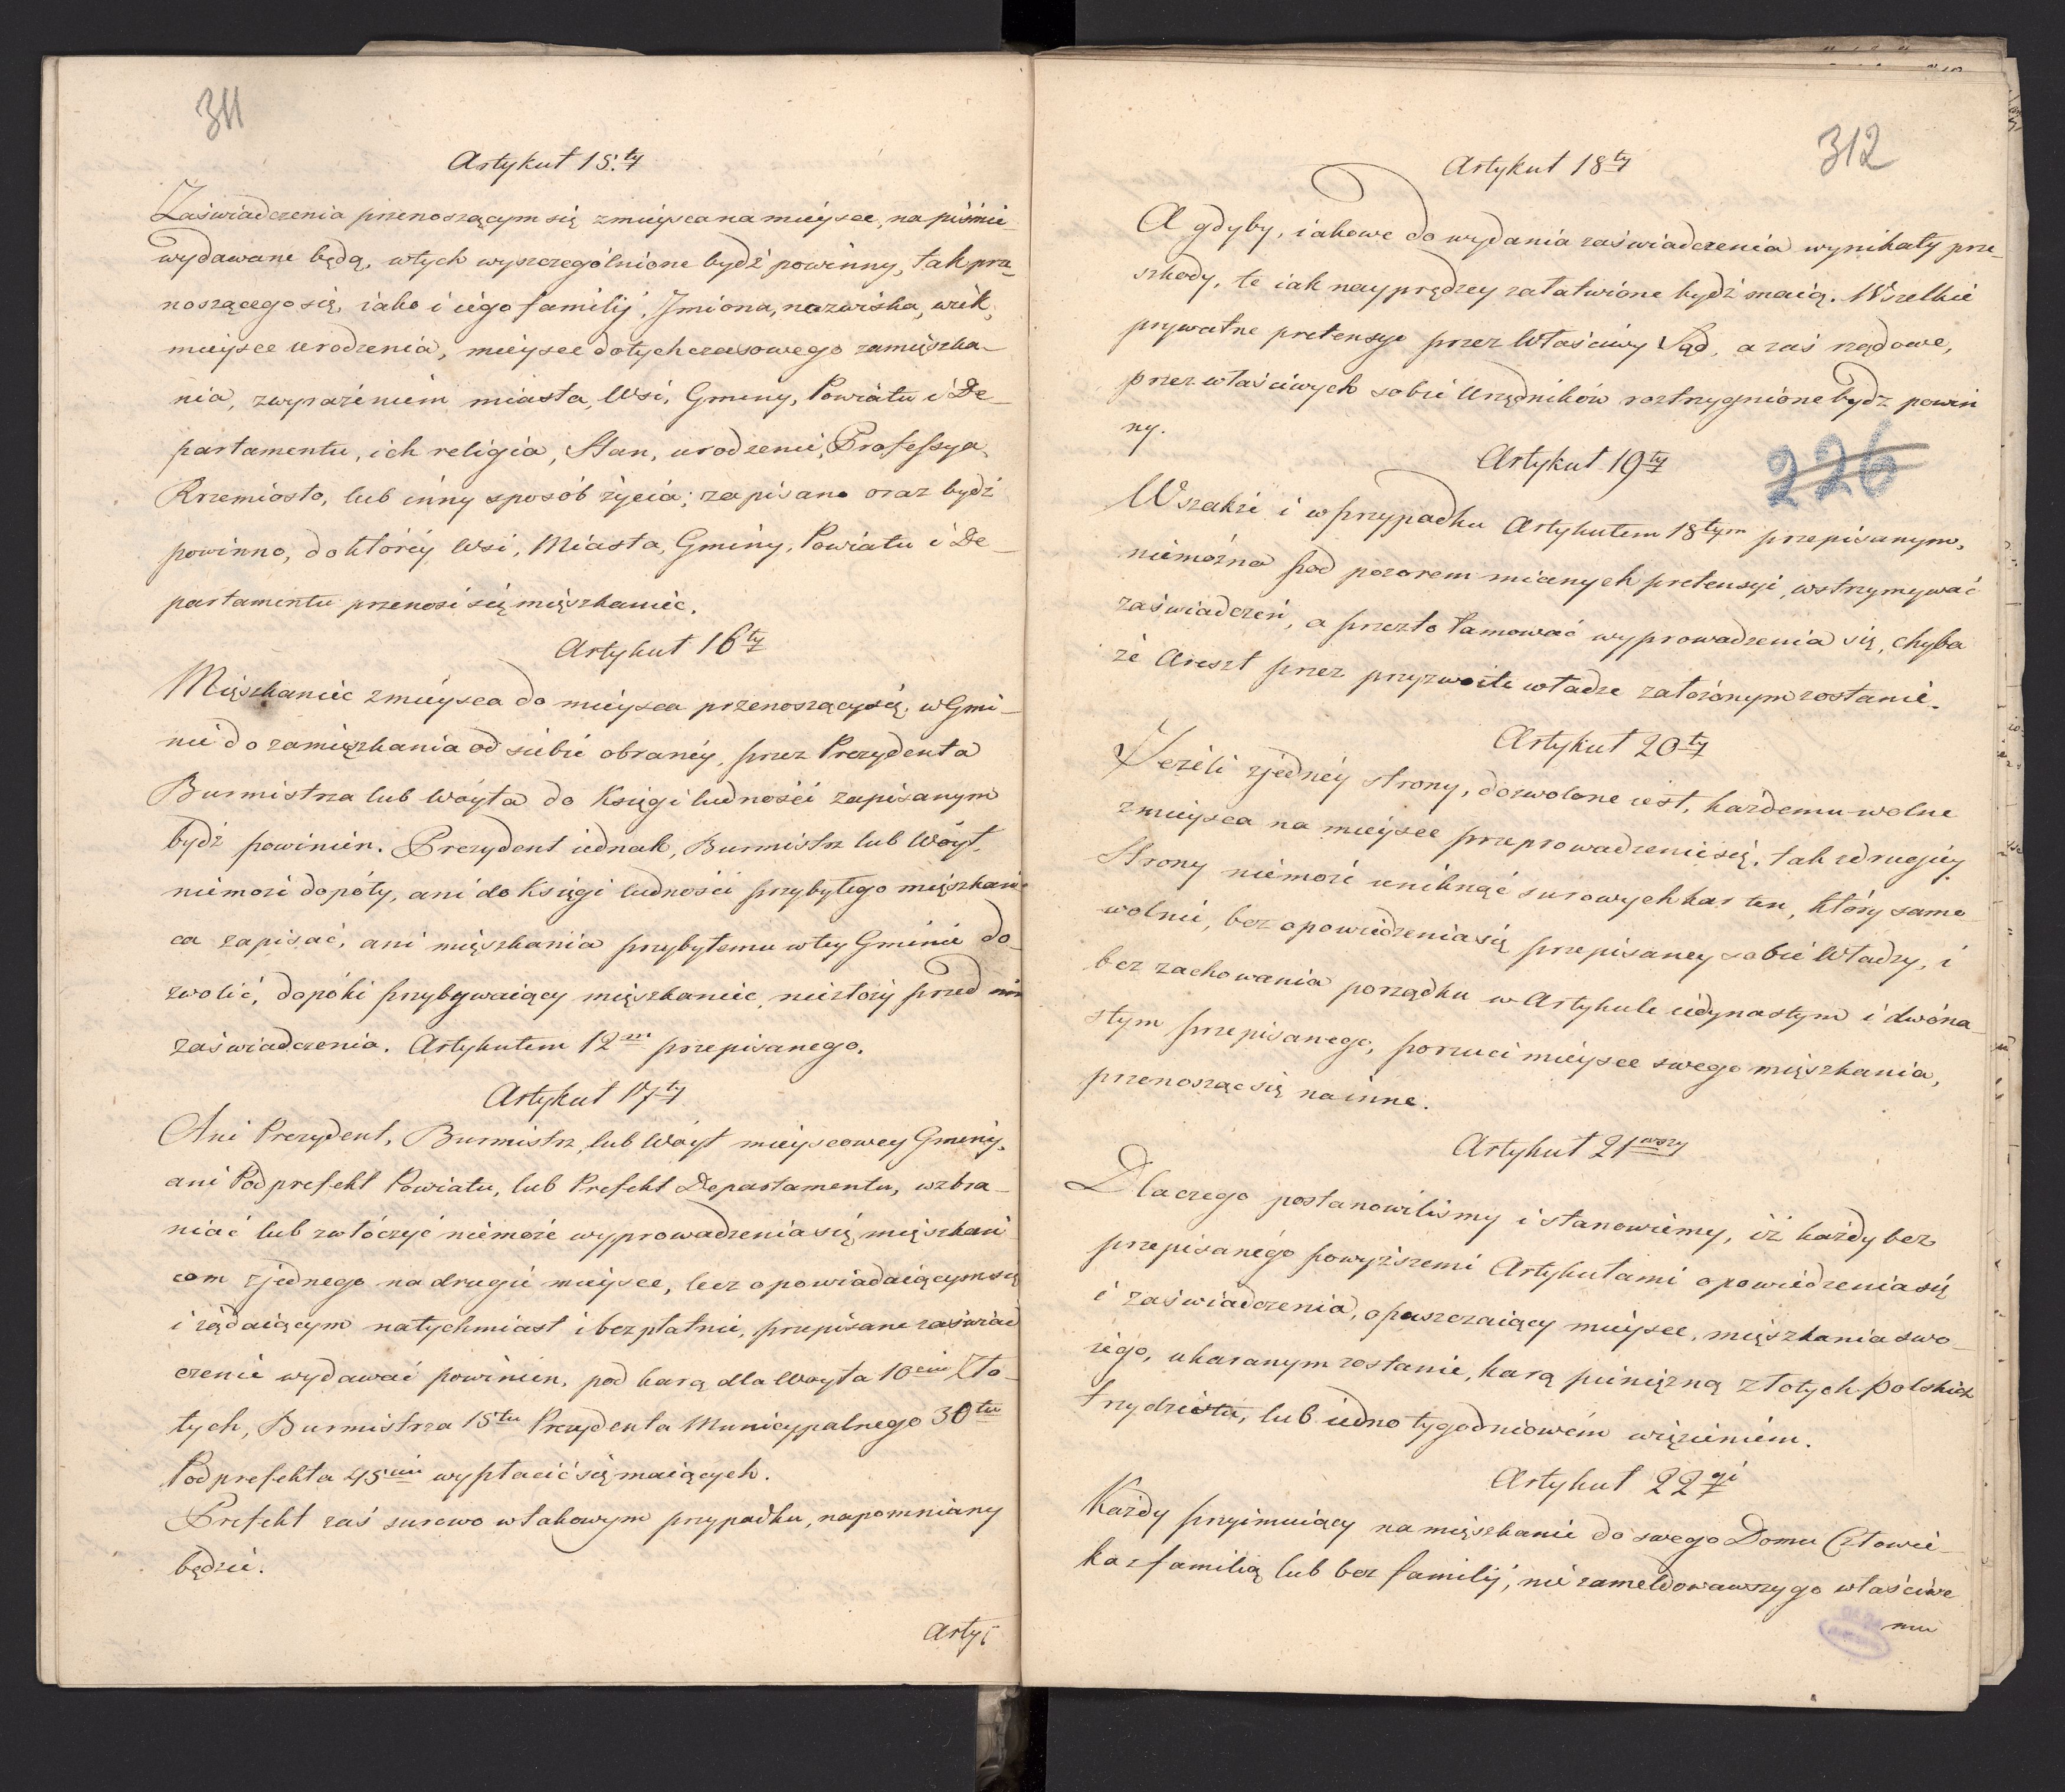 311
Artykuł 15.ty
Zaświadczenia przenoszącym się zmieysca na mieysce, na piśmie
wydawane będą, w tych wyszczególnione bydź powinny, tak prze-
noszącego się, iako i iego familij, Jmiona, nazwiska, wiek,
mieysce urodzenia, mieysce dotychczasowego zamięszka-
nia, z wyrażeniem miasta, Wsi, Gminy, Powiatu i De-
partamentu, ich religia, Stan, urodzenie, Professya,
Rzemiosło, lub inny sposób życia; zapisano oraz bydź
powinno, do któréy Wsi, Miasta, Gminy, Powiatu i De-
partamentu przenosi się mięszkaniec.
Artykuł 16ty
Mięszkaniec z mieysca do mieysca przenoszący się, w Gmi-
nie do zamięszkania od siebie obranéy, przez Prezydenta
Burmistrza lub Wóyta do Księgi ludności zapisanym
bydź powinien. Prezydent iednak, Burmistrz lub Wóyt,
niemoże dopóty, ani do Księgi ludności przybyłego mięszkań-
ca zapisać, ani mięszkania przybyłemu w tey Gminie do-
zwolić, dopóki przybywaiący mięszkaniec, nie złoży przed nim
zaświadczenia. Artykułem 12m przepisanego.
Artykuł 17ty
Ani Prezydent, Burmistrz, lub Wóyt mieyscowey Gminy,
ani Podprefekt Powiatu, lub Prefekt Departamentu, wzbra-
niać lub zwłóczyć niemoże wyprowadzenia się mięszkań
com z jednego na drugie mieysce, lecz opowiadaiącym się
i żądaiącym natychmiast i bezpłatnie, przepisane zaświad
czenie wydawać powinien, pod karą dla Woyta 10ciu Zło-
tych, Burmistrza 15tu Prezydenta Municypalnego 30tu
Podprefekta 45ciu wypłacić się maiących.
Prefekt zaś surowo w takowym przypadku, napomniany
będzie.
Arty:
312
Artykuł 18ty
A gdyby, iakowe do wydania zaświadczenia wynikały prze-
szkody, te iak nayprędzey załatwione bydź maią. Wszelkie
prywatne pretensye przez Właściwy Sąd, a zaś rządowe,
przez właściwych sobie Urzędników roztrzygnione bydz powin
ny.
Artykuł 19ty
226
Wszakże i w przypadku Artykułem 18tym przepisanym,
niemożna pod pozorem mianych pretensyi, wstrzymywać
zaświadczeń, a przezto tamować wyprowadzenia się, chyba
że Areszt przez przyzwoite władze założonym zostanie.
Artykuł 20ty
Jeżeli z jednéy strony, dozwolone iest, każdemu wolne
z mieysca na mieysce przeprowadzenie się, tak z drugiéy
Strony niemoże uniknąć surowych kar ten, który samo-
wolnie, bez opowiedzenia się przepisaney sobie Władzy, i
bez zachowania porządku w Artykule iedynastym i dwóna-
stym przepisanego, porzuci mieysce swego mięszkania,
przenosząc się na inne.
Artykuł 21wszy
Dlaczego postanowiliśmy i stanowiemy, iż każdy bez
przepisanégo powyższemi Artykułami opowiedzenia się
i zaświadczenia, opuszczaiący mieysce, mięszkania swo-
iégo, ukaranym zostanie, karą pieniężną złotych polskich
trzydziestu, lub iedno tygodniowém więzieniém.
Artykuł 22gi
Każdy przyimuiący na mięszkanie do swego Domu Człowie-
ka z familią lub bez familij, nie zameldowawszy go właściwe
mu